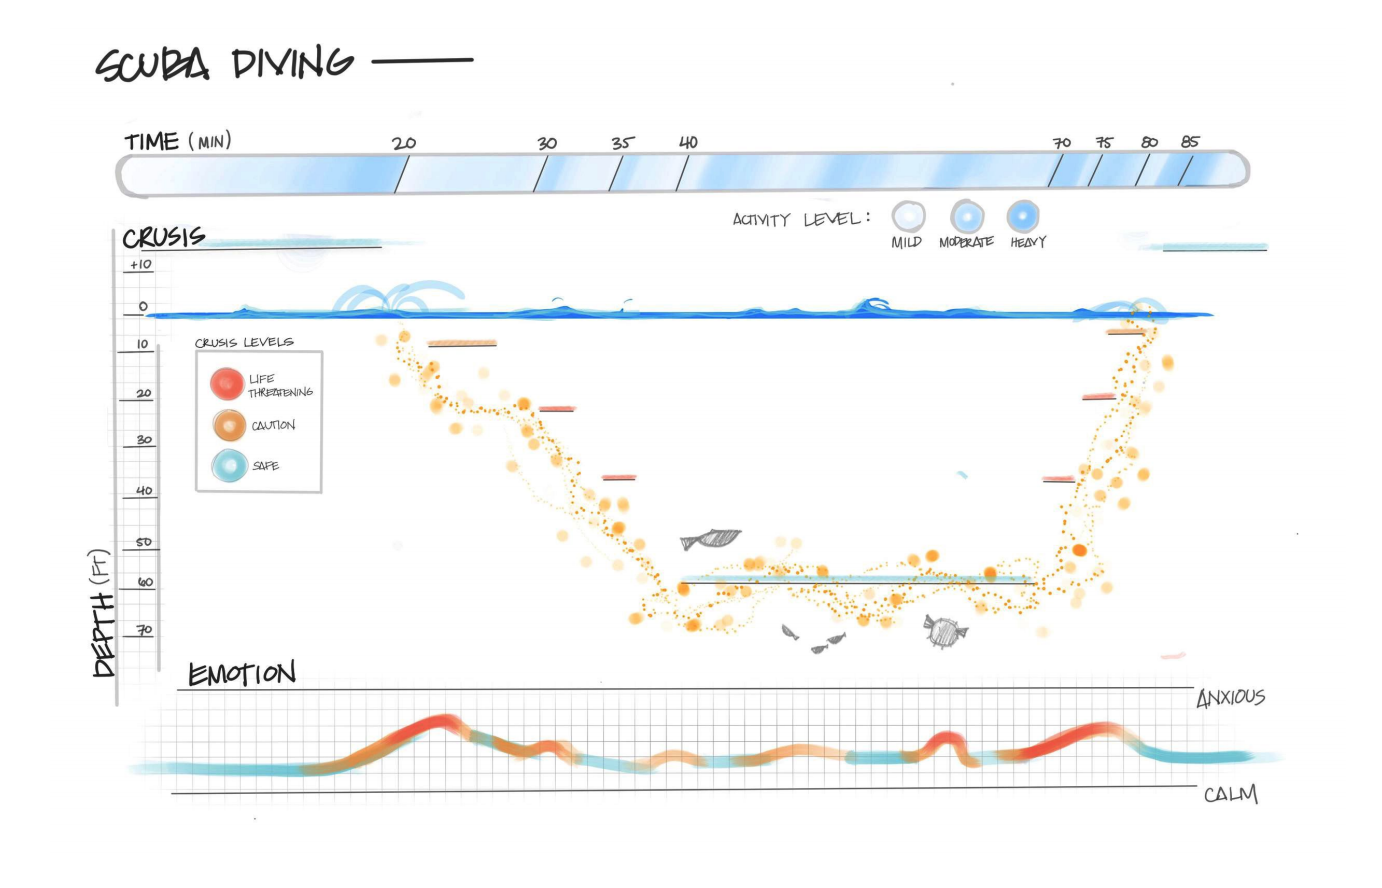 SCUBA DIVING
TIME (MIN)
20 30 35 40 70 75 80 85
ACTIVITY LEVEL:
MILD MODERATE HEAVY
CRUSIS
+10
0
10
20
30
40
50
60
70
DEPTH (FT)
CRUSIS LEVELS
LIFE
THREATENING
CAUTION
SAFE
EMOTION
ANXIOUS
CALM